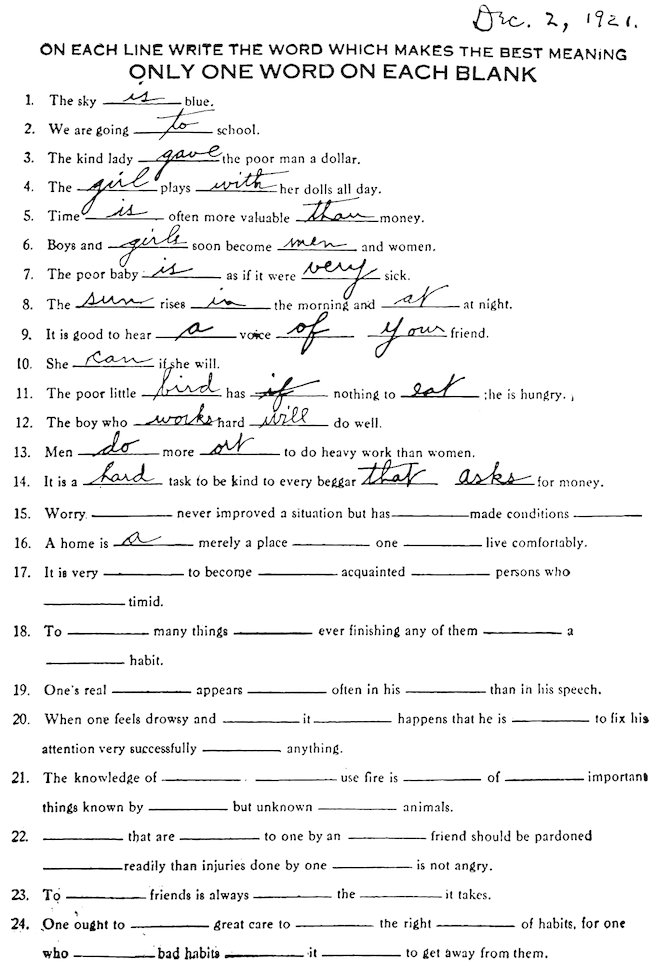 Dec. 2, 1921.
ON EACH LINE WRITE THE WORD WHICH MAKES THE BEST MEANING
ONLY ONE WORD ON EACH BLANK
1. The sky is blue.
2. We are going to school.
3. The kind lady gave the poor man a dollar.
4. The girl plays with her dolls all day.
5. Time is often more valuable than money.
6. Boys and girls soon become men and women.
7. The poor baby is as if it were very sick.
8. The sun rises in the morning and at at night.
9. It is good to hear a voice of your friend.
10. She can if she will.
11. The poor little bird has if nothing to eat ; he is hungry.
12. The boy who works hard will do well.
13. Men do more ort to do heavy work than women.
14. It is a hard task to be kind to every beggar that asks for money.
15. Worry ________ never improved a situation but has ________ made conditions ________
16. A home is a merely a place ________ one ________ live comfortably.
17. It is very ________ to become ________ acquainted ________ persons who
________ timid.
18. To ________ many things ________ ever finishing any of them ________ a
________ habit.
19. One's real ________ appears ________ often in his ________ than in his speech.
20. When one feels drowsy and ________ it ________ happens that he is ________ to fix his
attention very successfully ________ anything.
21. The knowledge of ________ ________ use fire is ________ of ________ important
things known by ________ but unknown ________ animals.
22. ________ that are ________ to one by an ________ friend should be pardoned
________ readily than injuries done by one ________ is not angry.
23. To ________ friends is always ________ the ________ it takes.
24. One ought to ________ great care to ________ the right ________ of habits, for one
who ________ bad habits ________ it ________ to get away from them.